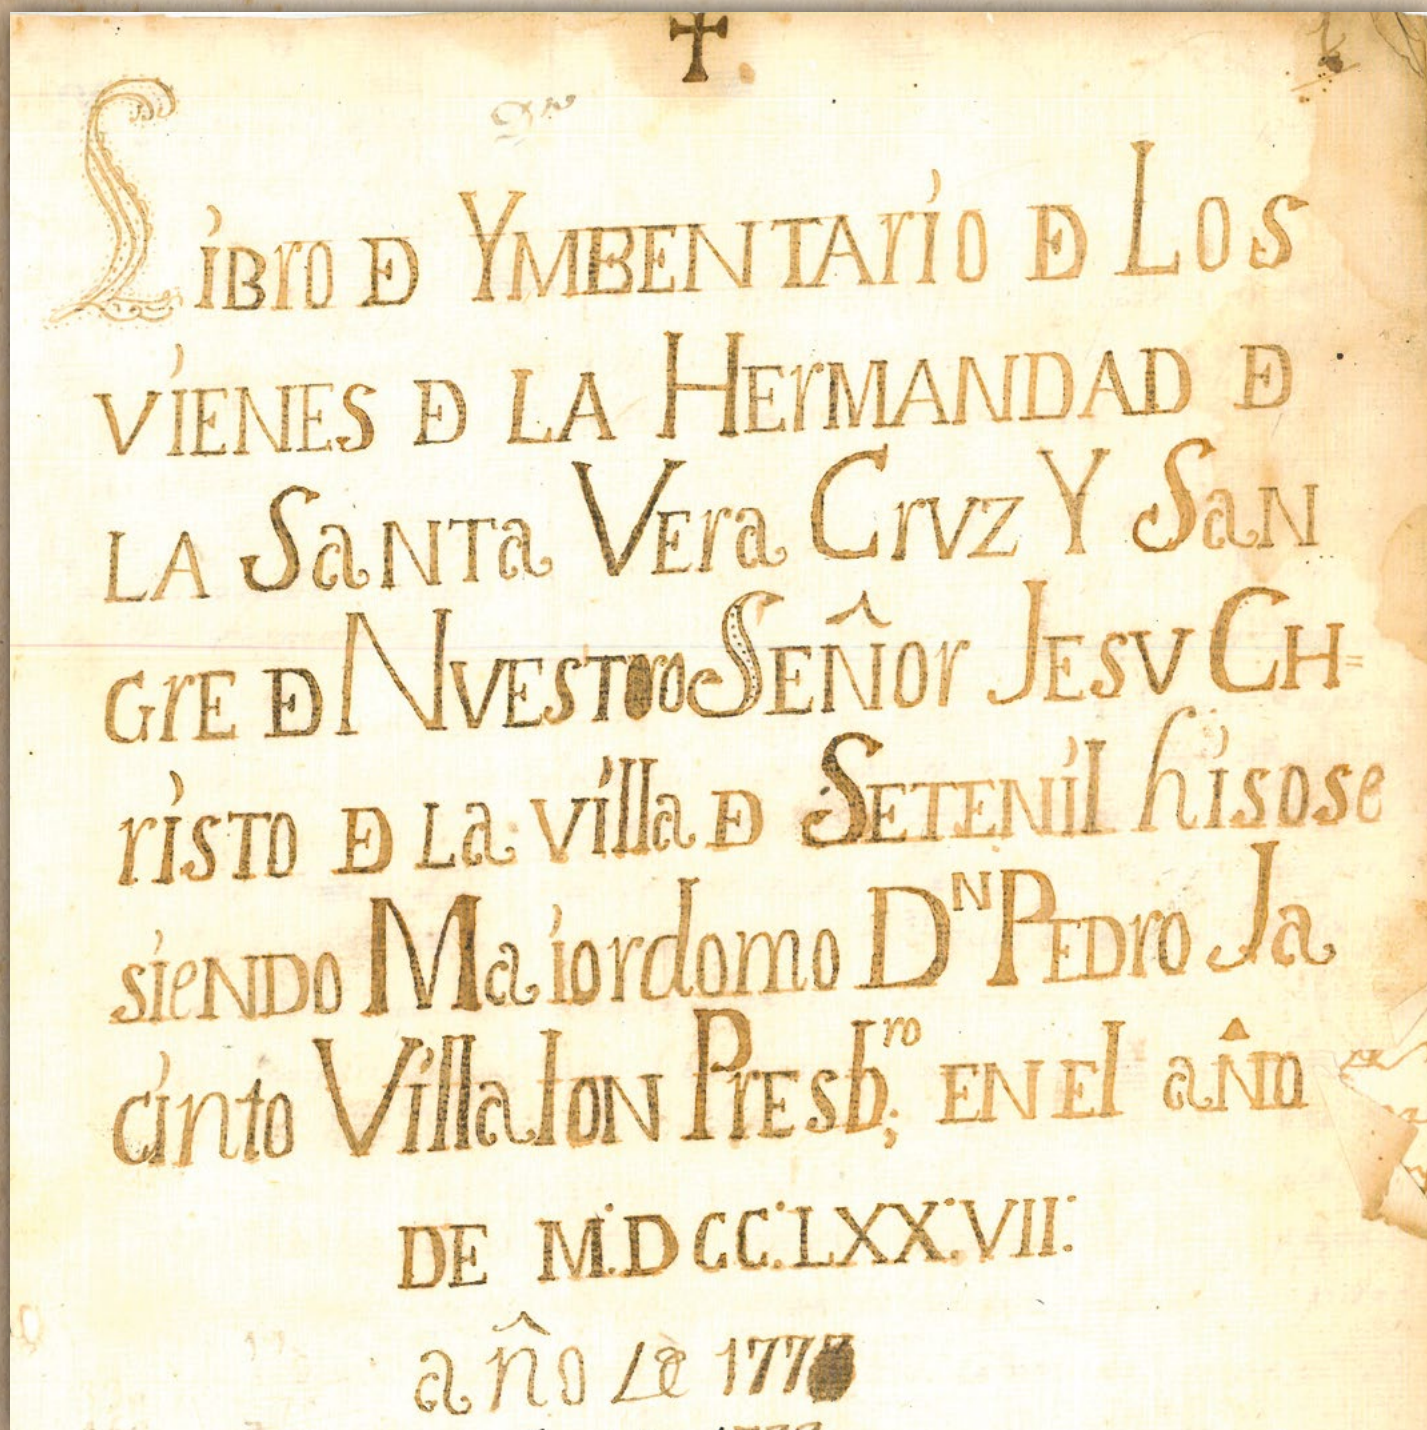 LiBro DE YMBENTArio DE Los
viENES DE LA HErMANDAD DE
LA SaNTa VEra CrVZ Y SaN
GrE DE NVESTro SEÑor JESV CH=
risTo DE La villa DE SETENil hisose
sieNDo Maiordomo Dᴺ PEDro Ja
cinto VillaloN PrEsbʳᵒ; EN El aÑo
DE M.DCC.LXX.VII:
año de 177